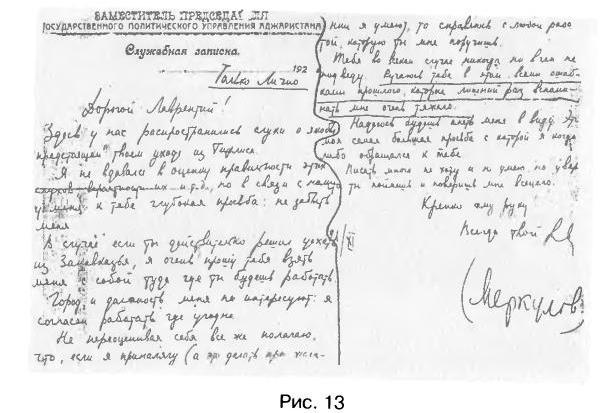 ЗАМЕСТИТЕЛЬ ПРЕДСЕДА
ГОСУДАРСТВЕННОГО ПОЛИТИЧЕСКОГО УПРАВЛЕНИЯ АДЖАРИСТАНА
Служебная записка.
192
Только Лично
Дорогой Лаврентий!
Здесь у нас распространились слухи о якобы
предстоящем твоем уходе из Тифлиса.
Я не вдаюсь в оценку правильности этих
слухов вероятности их и т.д., но в связи с
у меня к тебе глубокая просьба: не забыть
меня
В случае если ты действительно решил уехать
из Закавказья, я очень прошу тебя взять
меня с собой туда где ты будешь работать.
Город и должность меня не интересуют: я
согласен работать где угодно.
Не переоценивая себя все же полагаю,
что, если я приналягу (а это делать при жела-
нии я умею), то справлюсь с любой рабо
той, которую ты мне поручишь.
Тебя во всяком случае никогда ни в чем не
подведу. Ручаюсь тебе в этом всеми ошиб-
ками прошлого, которые лишний раз вспоми-
нать мне очень тяжело.
Надеюсь будешь иметь меня в виду. Это
моя самая большая просьба с которой я когда
либо обращался к тебе.
Писать много не хочу и не умею, но увер
ты поймешь и поверишь мне всецело.
Крепко жму руку
Всегда твой
(Меркулов)
Рис. 13